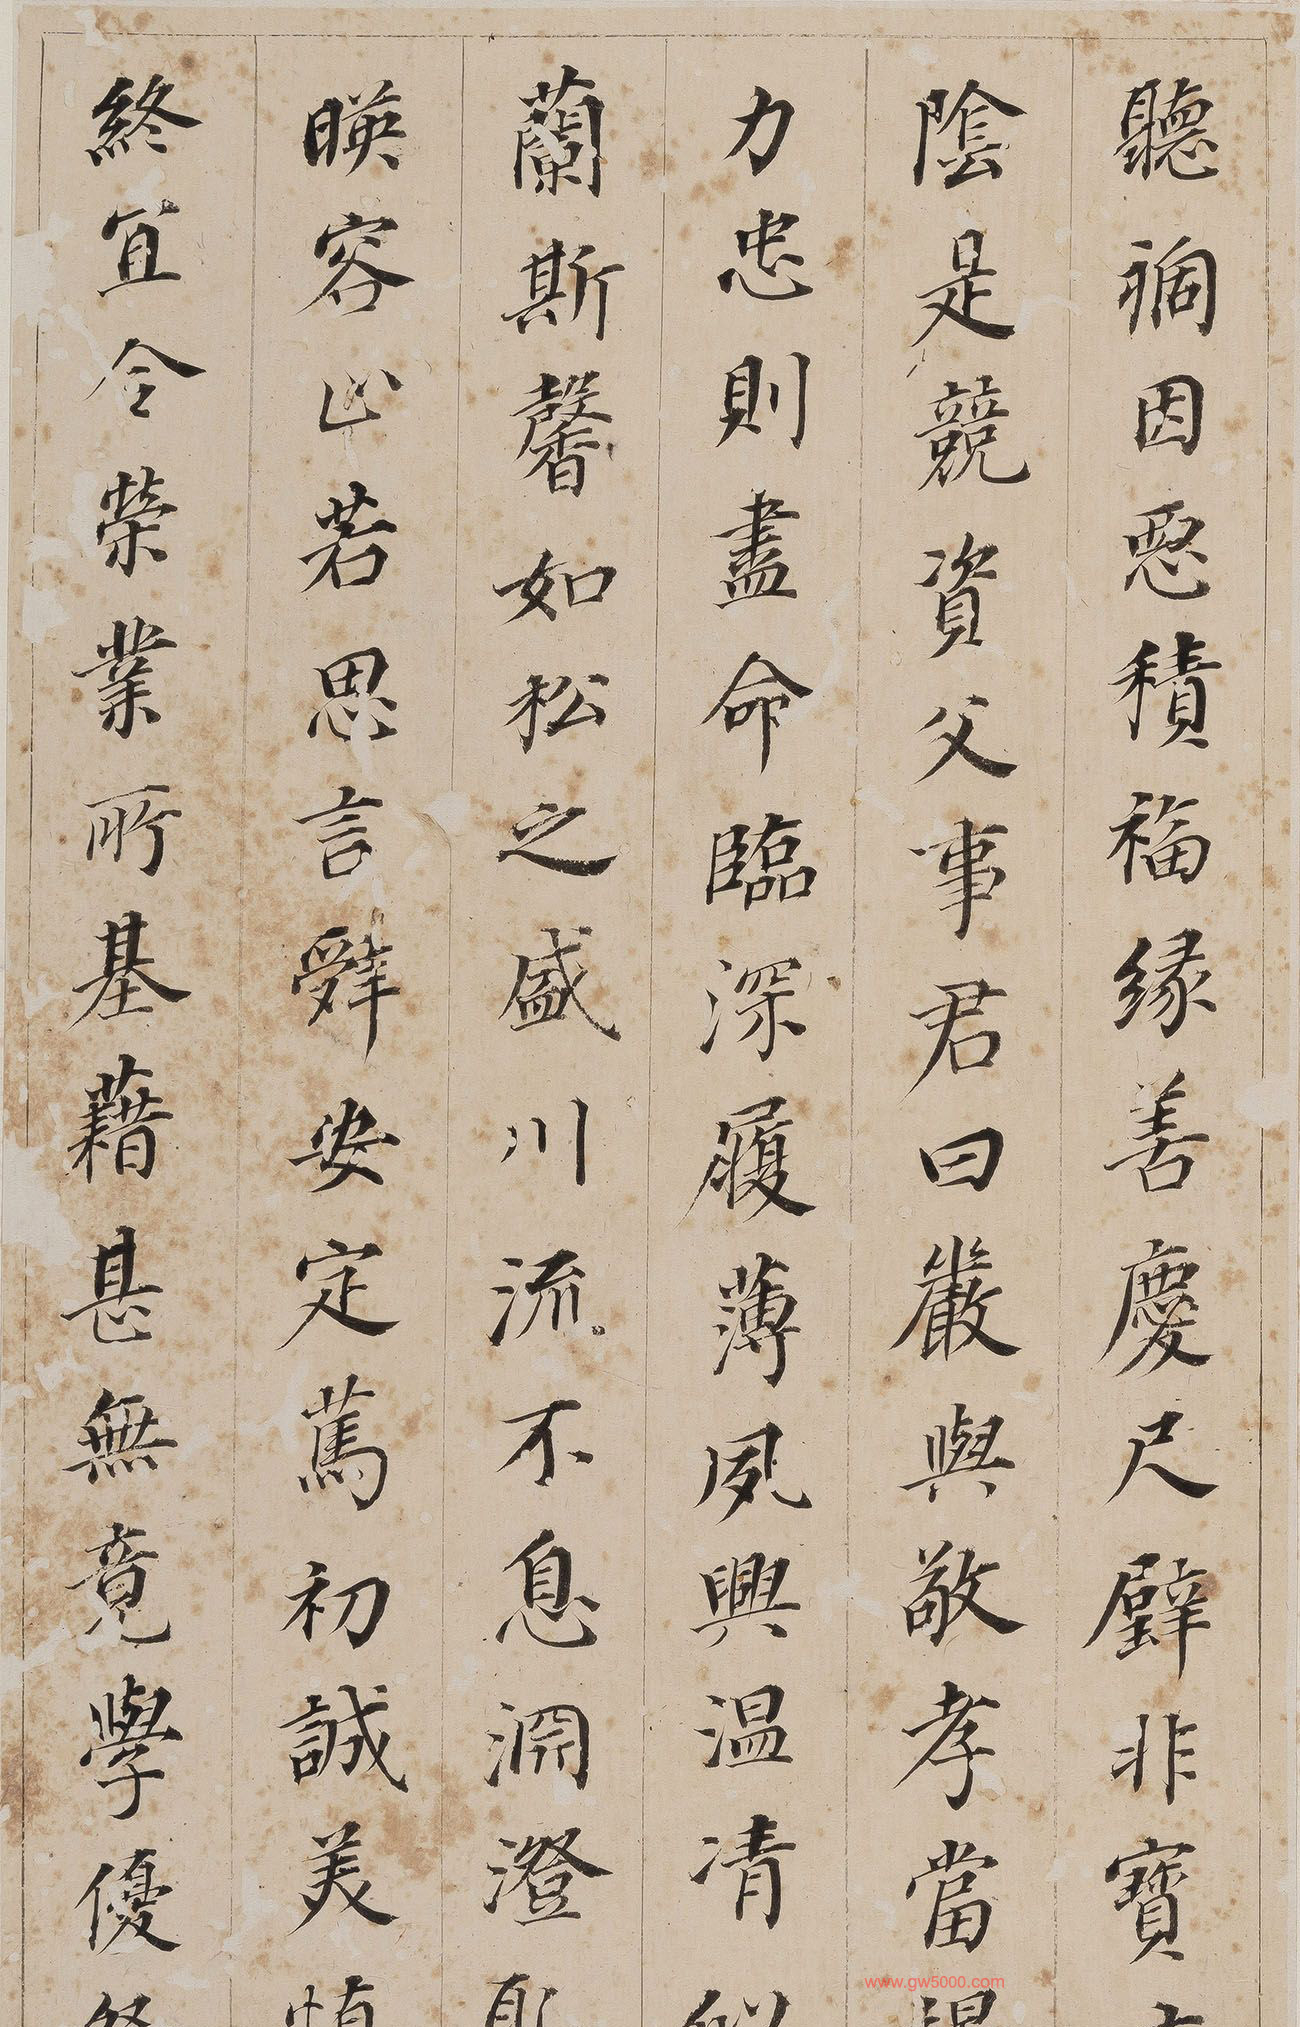 聽禍因惡積福緣善慶尺璧非寶
陰是競資父事君曰嚴與敬孝當
力忠則盡命臨深履薄夙興温凊
蘭斯馨如松之盛川流不息淵澄取
暎容止若思言辭安定篤初誠美慎
終宜令榮業所基藉甚無竟學優登
www.gw5000.com